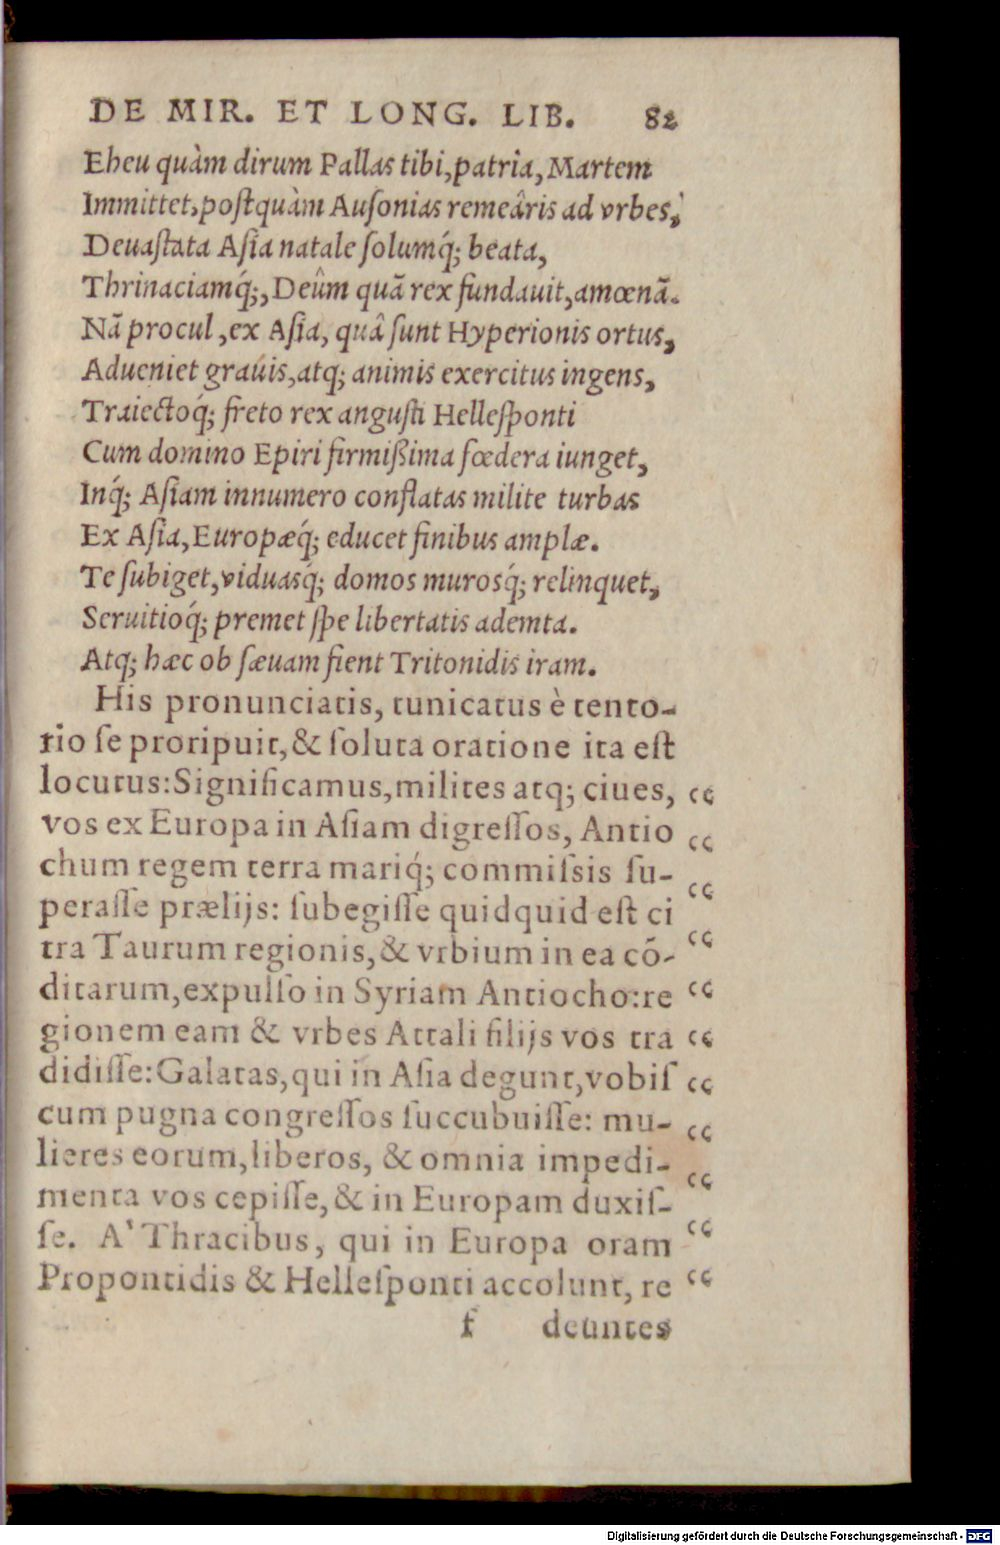 DE MIR. ET LONG. LIB. 82
Eheu quàm dirum Pallas tibi, patria, Martem
Immittet, postquàm Ausonias remeâris ad vrbes,
Deuastata Asia natale solumq́; beata,
Thrinaciamq́;, Deûm quā rex fundauit, amœnā.
Nā procul, ex Asia, quâ sunt Hyperionis ortus,
Adueniet grauis, atq; animis exercitus ingens,
Traiectoq́; freto rex angusti Hellesponti
Cum domino Epiri firmißima fœdera iunget,
Inq́; Asiam innumero conflatas milite turbas
Ex Asia, Europæq́; educet finibus amplæ.
Te subiget, viduasq́; domos murosq́; relinquet,
Seruitioq́; premet spe libertatis ademta.
Atq; hæc ob sæuam fient Tritonidis iram.
His pronunciatis, tunicatus è tento-
rio se proripuit, & soluta oratione ita est
locutus: Significamus, milites atq; ciues, “
vos ex Europa in Asiam digressos, Antio “
chum regem terra mariq́; commissis su- “
perasse prælijs: subegisse quidquid est ci “
tra Taurum regionis, & vrbium in ea cō- “
ditarum, expulso in Syriam Antiocho: re “
gionem eam & vrbes Attali filijs vos tra “
didisse: Galatas, qui in Asia degunt, vobis “
cum pugna congressos succubuisse: mu- “
lieres eorum, liberos, & omnia impedi- “
menta vos cepisse, & in Europam duxis- “
se. A' Thracibus, qui in Europa oram “
Propontidis & Hellesponti accolunt, re “
f deuntes
Digitalisierung gefördert durch die Deutsche Forschungsgemeinschaft - DFG